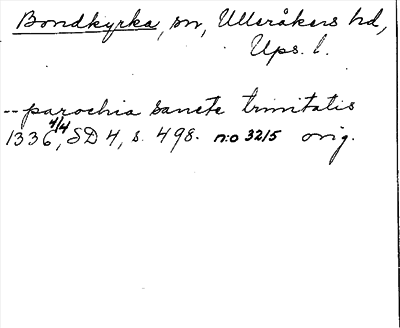 Bondkyrka, sn, Ulleråkers hd,
Ups. l.
-- parochia sancte trinitatis
1336 4/4, SD 4, s. 498. n:o 3215 orig.